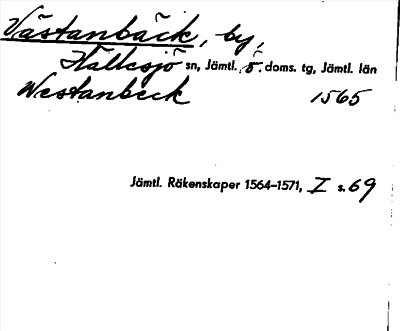 Västanbäck, by,
Hällesjö sn, Jämtl. 5. doms. tg, Jämtl. län
Westanbeck 1565
Jämtl. Räkenskaper 1564–1571, I s. 69